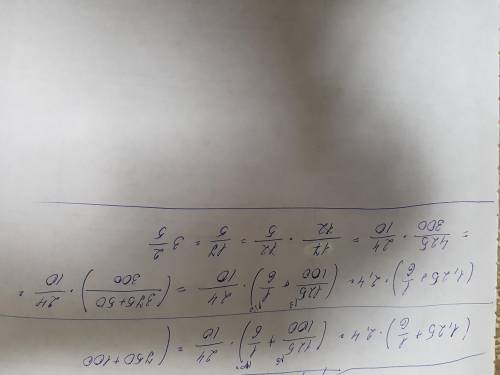 (1,25 + 1/6) · 2,4 = (125/100 + 1/6) · 24/10 = (750+100
(1,25 + 1/6) · 2,4 = (125/100 + 1/6) · 24/10 = (375+50/300) · 24/10 =
= 425/300 · 24/10 = 17/12 · 12/5 = 17/5 = 3 2/5